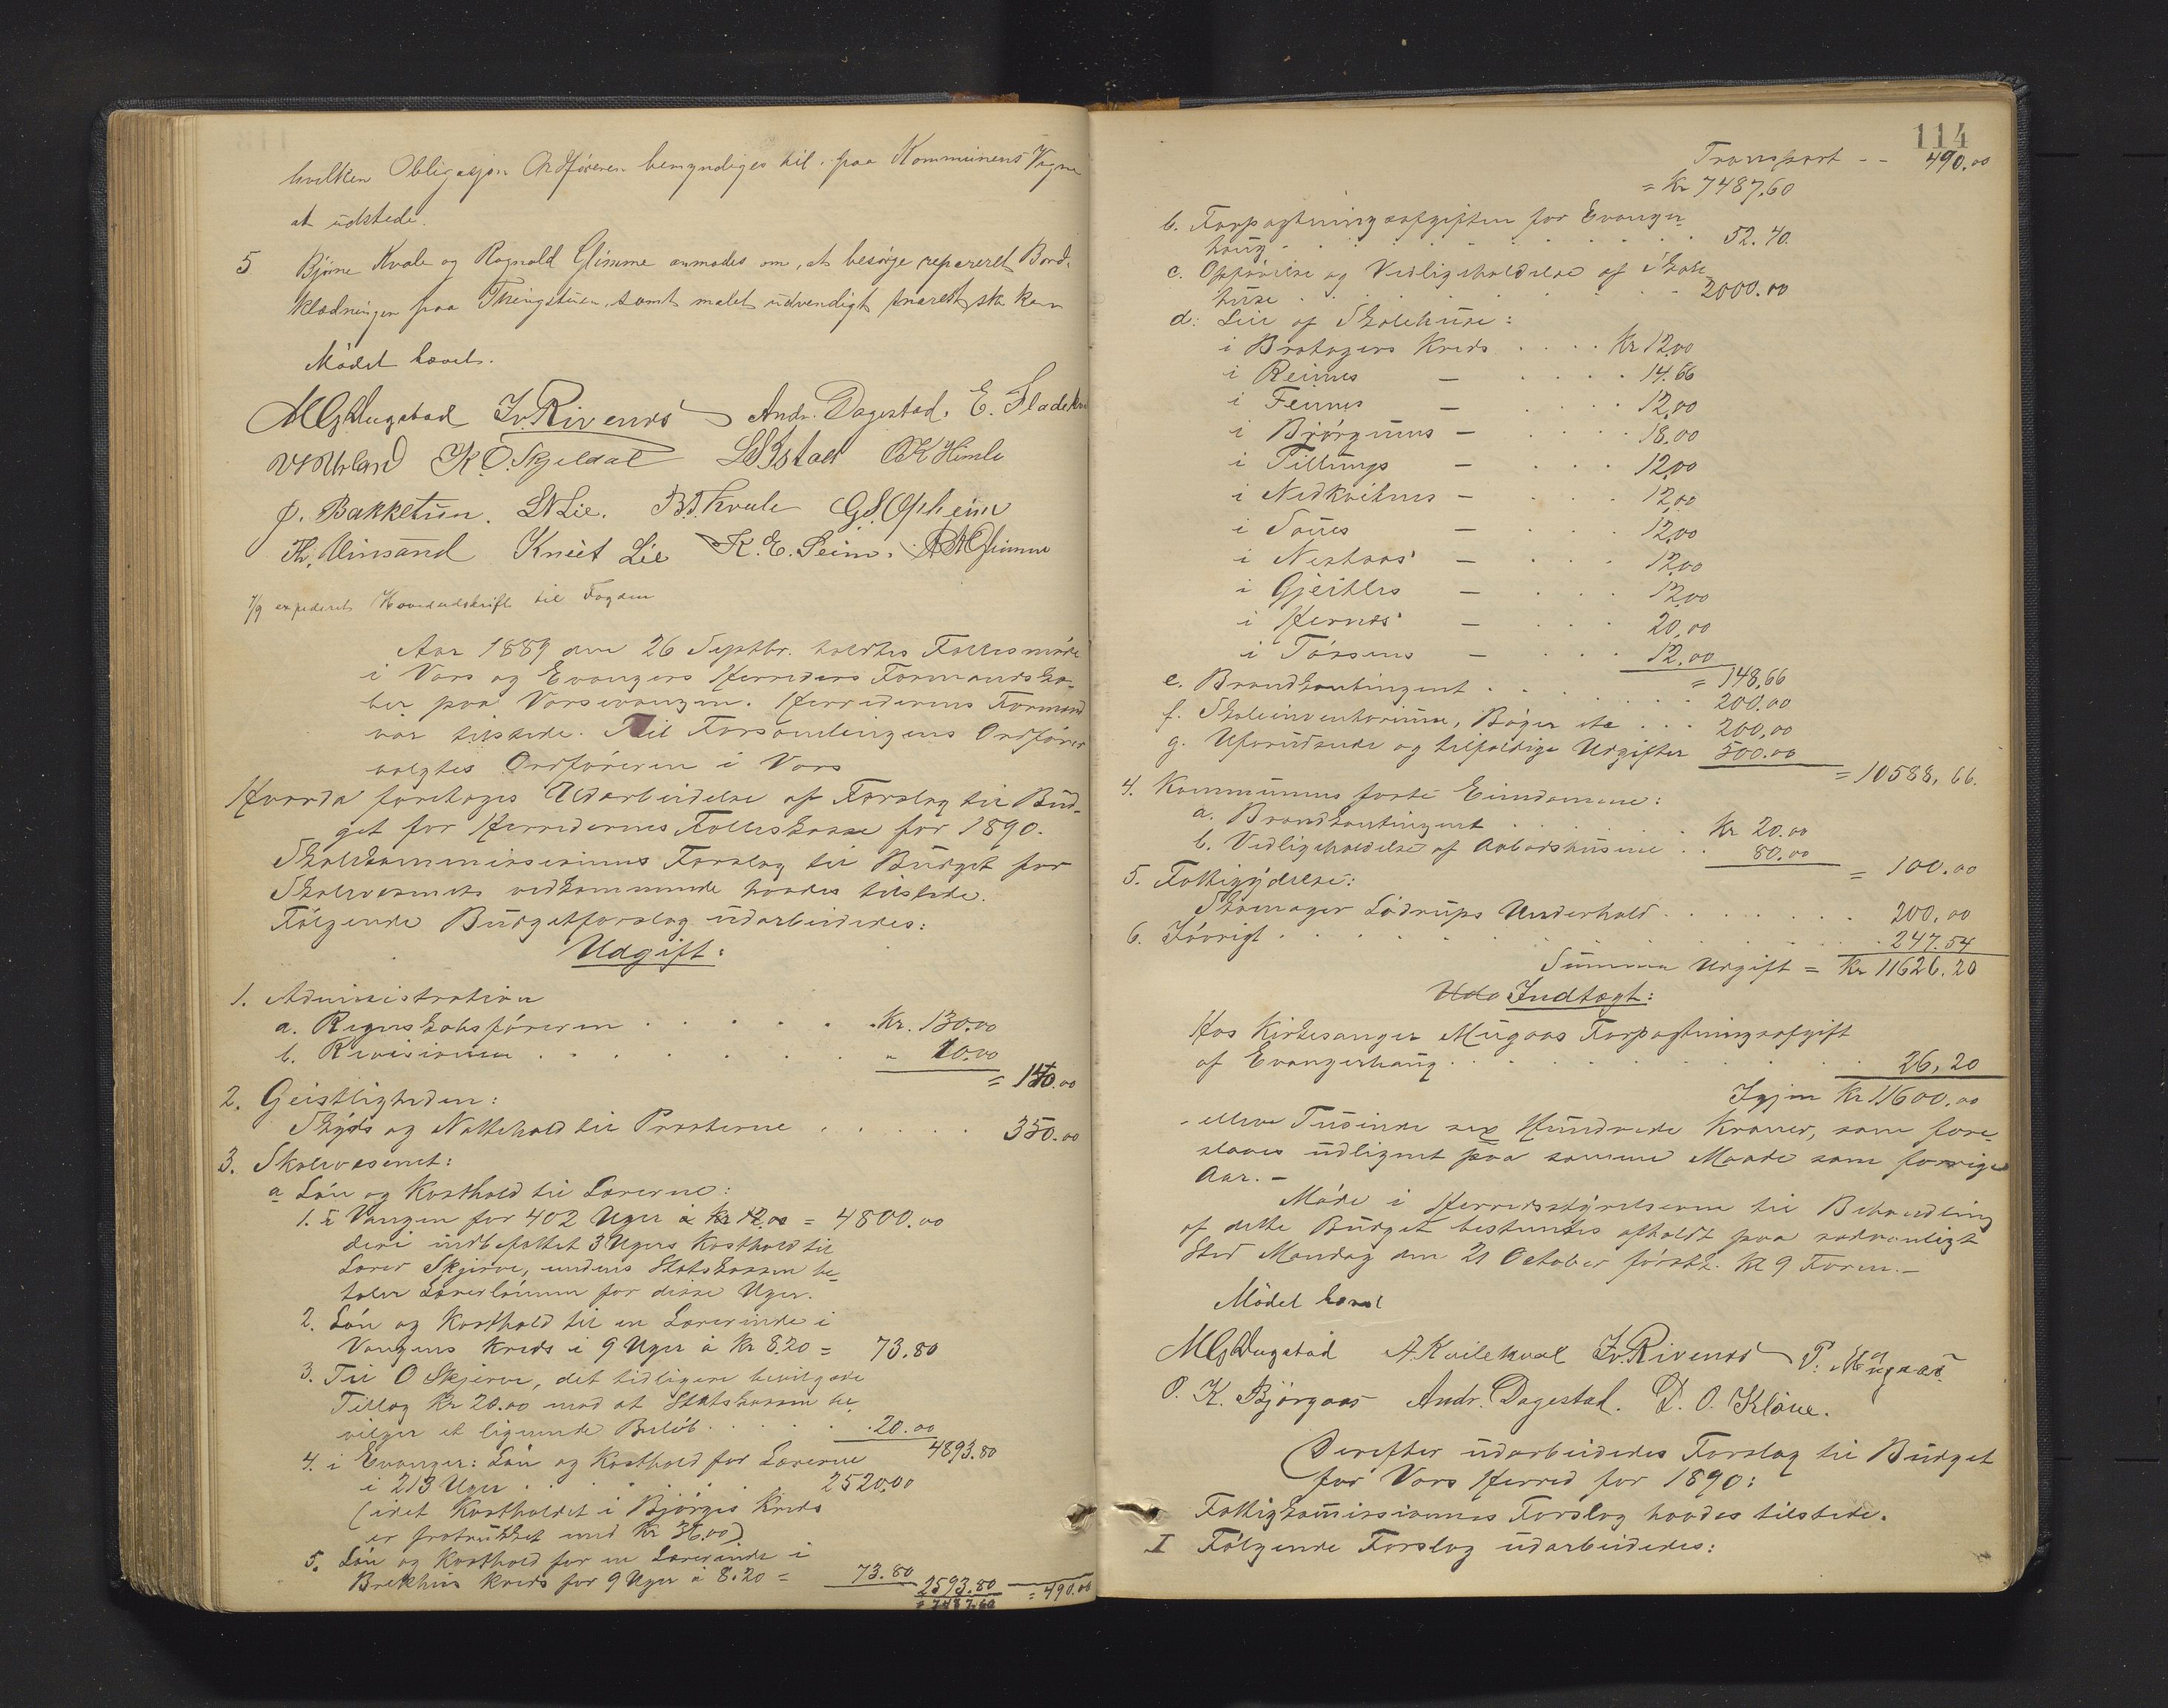 hvilken Obligasjon Ordføreren bemyndiges til paa Kommunens Vegne
at udstede.
5 Bjørne Kvale og Ragnald Glimme anmodes om, at besørge repareret Bord-
klædningen paa Thingstuen, samt malet udvendigt snarest ske kan
Mødet hævet.
MGDugstad Iv. Rivenæs Andr. Dagestad. E. Fladek
K. O. Skjeldal OK Himle
J. Bakketun. LNLie. B.T. Kvale G.S. Opheim
Th. Vinsand Knut Lie K. E. Seim. RAGlimme
7/9 expederet Hovedudskrift til Fogden
Aar 1889 den 26 Septbr. holdtes Fællesmøde
i Vors og Evangers Herreders Formandska-
ber paa Vorsevangen. Herredernes Formænd
var tilstede. Til Forsamlingens Ordfører
valgtes Ordføreren i Vors
Hvorda foretoges Udarbeidelse af Forslag til Bud-
get for Herredernes Fælleskasse for 1890.
Skolekommissionens Forslag til Budget for
Skolevæsenets vedkommende havdes tilstede.
Følgende Budgetforslag udarbeidedes:
Udgift:
1. Administration
a. Regnskabsføreren . . . . . . Kr. 130.00
b. Revisionen . . . . . . . . „ 10.00
= 140.00
2. Geistligheden:
Skyds og Nattehold til Præsterne . . . . . . 350.00
3. Skolevæsenet:
a Løn og Kosthold til Lærerne:
1. i Vangen for 402 Uger à Kr 12.00 = 4800.00
deri indbefattet 3 Ugers Kosthold til
Lærer Skjerve, medens Statskassen be-
taler Lærerlønnen for disse Uger.
2. Løn og Kosthold til en Lærerinde i
Vangens Kreds i 9 Uger à Kr 8.20 = 73.80
3. Til O Skjerve, det tidligere bevilgede
Tillæg Kr 20.00 mod at Statskassen be-
vilger et lignende Beløb . . . . . . 20.00
4893.80
4. i Evanger: Løn og Kosthold for Lærerne
i 213 Uger . . . . . . . 2520.00
(idet Kostholdet i Bjørges Kreds
er fratrukket med Kr 36.00)
5. Løn og Kosthold for en Lærerinde i
Brekhus Kreds for 9 Uger à 8.20 = 73.80
2593.80 = 490.00
= 7487.60
114
Transport - - 490.00
= Kr 7487.60
b. Forpagtningsafgiften for Evanger-
haug . . . . . . . . . . 52.40.
c. Opførelse og Vedligeholdelse af Skole-
huse . . . . . . . . . 2000.00
d: Leie af Skolehuse:
i Bratagers Kreds . . . . Kr 12.00
i Reimes — . . . . 14.66
i Feines — . . . . 12.00
i Bjørgums — . . . . 18.00
i Tillungs — . . . 12.00
i Nedkvitnes — . . . 12.00
i Saues — . . . 12.00
i Nestaas — . . . 12.00
i Gjeitles — . . . 12.00
i Hernes — . . . 20.00
i Tøssens — . . . 12.00
= 148.66
e. Brandkontingent . . . . . . . 200.00
f. Skoleinventarium, Bøger etc . . . 200.00
g. Uforudsede og tilfældige Udgifter 500.00
= 10588.66.
4. Kommunens faste Eiendomme:
a. Brandkontingent . . . . . . Kr 20.00
b. Vedligeholdelse af Aabodshusene . . 80.00
= 100.00
5. Fattigydelse:
Skomager Lødrups Underhold . . . . . . . . 200.00
6. Iøvrigt . . . . . . . . . . . . 247.54
Summa Udgift = Kr 11626.20
Uds Indtægt:
Hos Kirkesanger Mugaas Forpagtningsafgift
af Evangerhaug . . . . . . . . . . . 26.20
Igjen Kr 11600.00
- elleve Tusinde sex Hundrede Kroner, som fore-
slaaes udlignet paa samme Maade som forrige
Aar. -
Møde i Herredsstyrelserne til Behandling
af dette Budget bestemtes afholdt paa sædvanligt
Sted Mandag den 21 October førstk. Kl 9 Form. -
Mødet hævet
MGDugstad A. Kvilekval Iv. Rivenæs P. Mugaas.
O. K. Bjørgaas Andr. Dagestad. D. O. Kløve.
Derefter udarbeidedes Forslag til Budget
for Vors Herred for 1890:
Fattigkommissionens Forslag havdes tilstede.
I Følgende Forslag udarbeidedes: